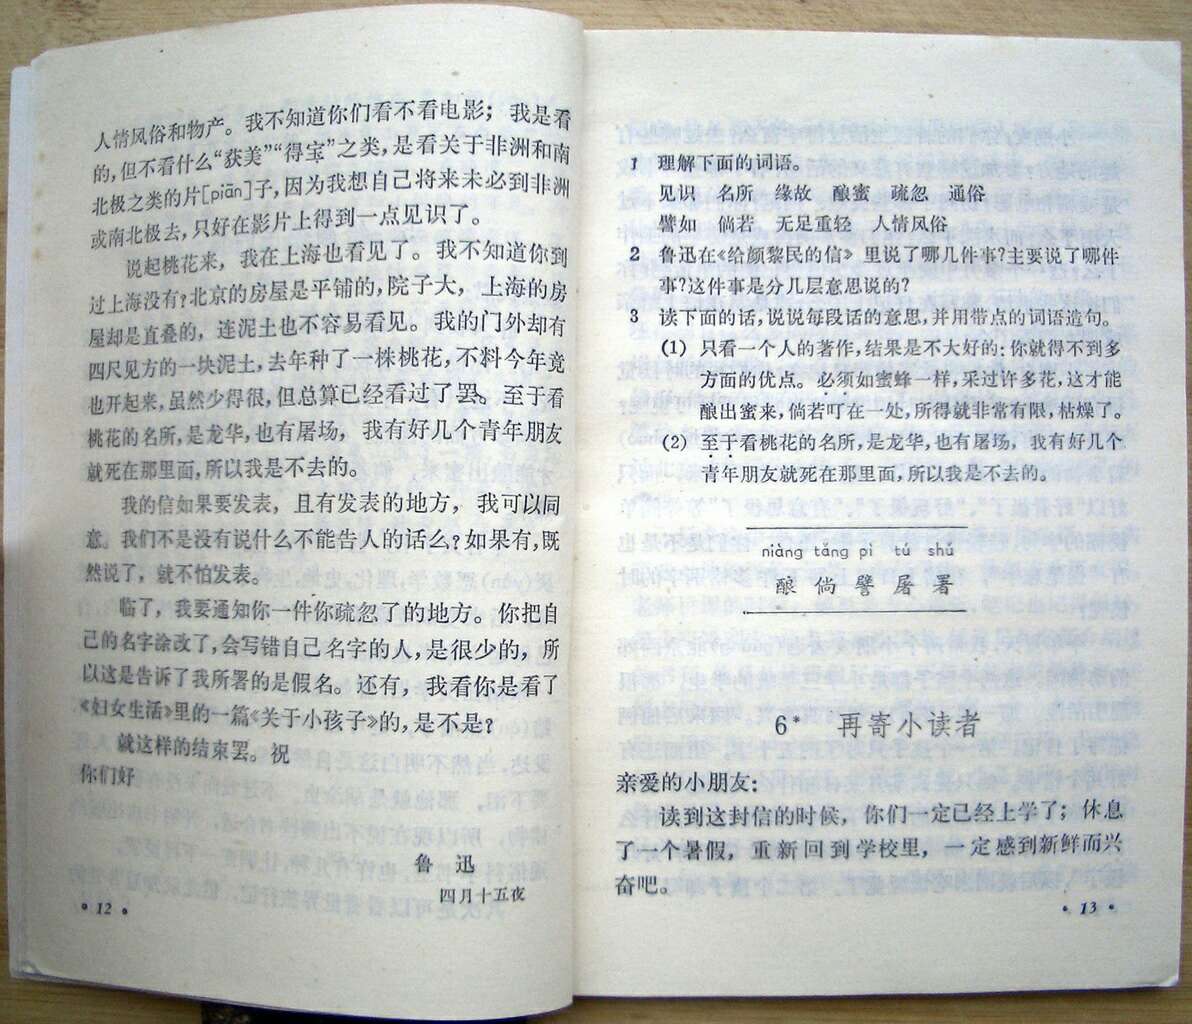 人情风俗和物产。我不知道你们看不看电影；我是看
的，但不看什么“获美”“得宝”之类，是看关于非洲和南
北极之类的片[piān]子，因为我想自己将来未必到非洲
或南北极去，只好在影片上得到一点见识了。
说起桃花来，我在上海也看见了。我不知道你到
过上海没有？北京的房屋是平铺的，院子大，上海的房
屋却是直叠的，连泥土也不容易看见。我的门外却有
四尺见方的一块泥土，去年种了一株桃花，不料今年竟
也开起来，虽然少得很，但总算已经看过了罢。至于看
桃花的名所，是龙华，也有屠场，我有好几个青年朋友
就死在那里面，所以我是不去的。
我的信如果要发表，且有发表的地方，我可以同
意。我们不是没有说什么不能告人的话么？如果有，既
然说了，就不怕发表。
临了，我要通知你一件你疏忽了的地方。你把自
己的名字涂改了，会写错自己名字的人，是很少的，所
以这是告诉了我所署的是假名。还有，我看你是看了
《妇女生活》里的一篇《关于小孩子》的，是不是？
就这样的结束罢。祝
你们好
鲁迅
四月十五夜
·12·
1 理解下面的词语。
见识 名所 缘故 酿蜜 疏忽 通俗
譬如 倘若 无足重轻 人情风俗
2 鲁迅在《给颜黎民的信》里说了哪几件事？主要说了哪件
事？这件事是分几层意思说的？
3 读下面的话，说说每段话的意思，并用带点的词语造句。
(1) 只看一个人的著作，结果是不大好的：你就得不到多
方面的优点。必须如蜜蜂一样，采过许多花，这才能
酿出蜜来，倘若叮在一处，所得就非常有限，枯燥了。
(2) 至于看桃花的名所，是龙华，也有屠场，我有好几个
青年朋友就死在那里面，所以我是不去的。
niàng tǎng pì tú shǔ
酿 倘 譬 屠 署
6* 再寄小读者
亲爱的小朋友：
读到这封信的时候，你们一定已经上学了；休息
了一个暑假，重新回到学校里，一定感到新鲜而兴
奋吧。
·13·